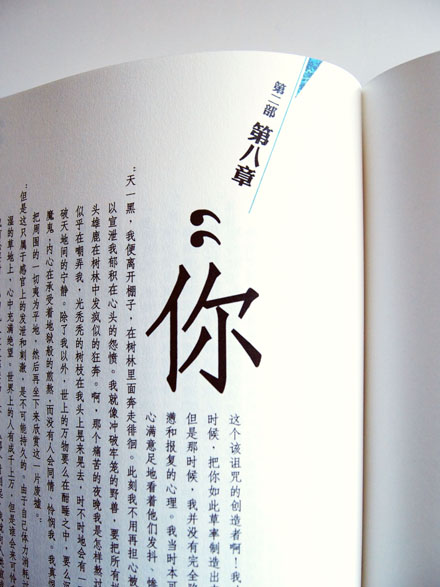 第二部
第八章
“你
这个该诅咒的创造者啊!我
时候,把你如此草率制造出
但是那时候,我并没有完
懑和报复的心理。我当时本可
心满意足地看着他们发抖、惨
“天一黑,我便离开棚子,在树林里面奔走徘徊。此刻我不用再担心被
以宣泄我郁积在心头的怨愤。我就像冲破牢笼的野兽,要把所有
头雄鹿在树林中发疯似的狂奔。啊,那个痛苦的夜晚我是怎样熬过
似乎在嘲弄我,光秃秃的树枝在我头上晃来晃去,时不时地会有一
破天地间的宁静。除了我以外,世上的万物要么在酣睡之中,要么
魔鬼,内心在承受着地狱般的煎熬,而没有人会同情、怜悯我。我真
把周围的一切夷为平地,然后再坐下来欣赏这一片废墟。
“但是这只属于感官上的发泄和刺激,是不可能持久的。由于自己体力消耗
湿的草地上,心中充满绝望。世界上的人有成千上万,但是谁会来可怜